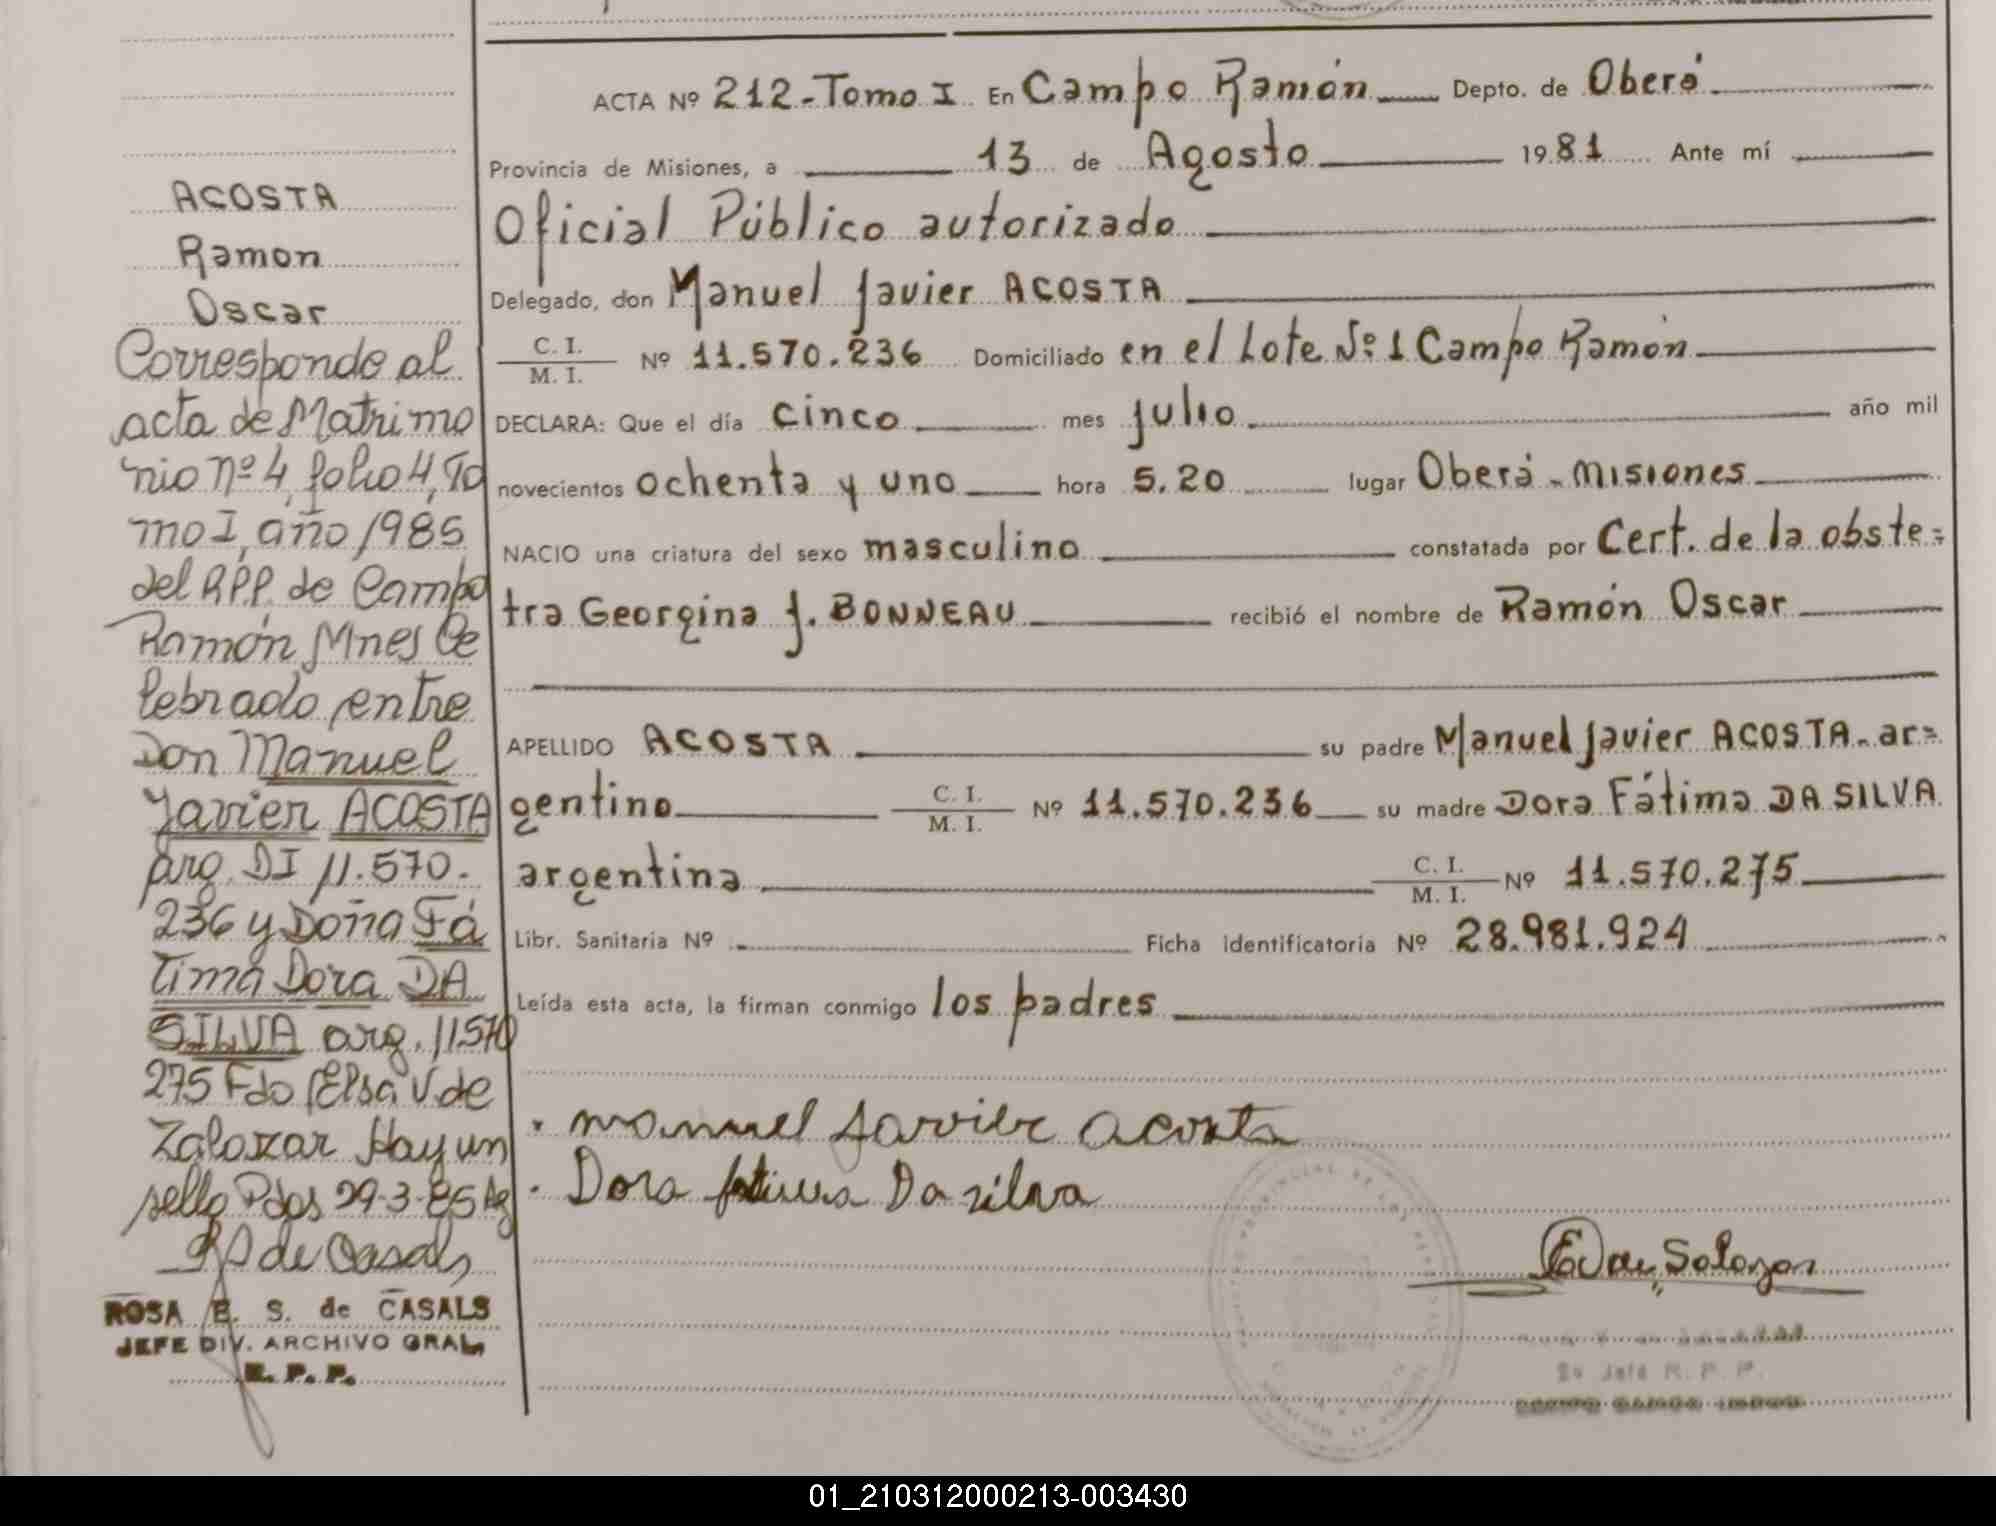 ACTA Nº 212-Tomo I En Campo Ramón Depto. de Oberá
Provincia de Misiones, a 13 de Agosto 1981 Ante mí
Oficial Público autorizado
Delegado, don Manuel Javier ACOSTA
C. I. / M. I. Nº 11.570.236 Domiciliado en el Lote Nº 1 Campo Ramón
DECLARA: Que el día cinco mes julio año mil
novecientos ochenta y uno hora 5.20 lugar Oberá - Misiones
NACIO una criatura del sexo masculino constatada por Cert. de la obste=
tra Georgina J. BONNEAU recibió el nombre de Ramón Oscar
APELLIDO ACOSTA su padre Manuel Javier ACOSTA - ar=
gentino C. I. / M. I. Nº 11.570.236 su madre Dora Fátima DA SILVA
argentina C. I. / M. I. Nº 11.570.275
Libr. Sanitaria Nº Ficha identificatoria Nº 28.981.924
Leída esta acta, la firman conmigo los padres
manuel Javier acosta
Dora fatima Da silva
ACOSTA
Ramon
Oscar
Corresponde al
acta de Matrimo
nio nº 4, folio 4, To
mo I, año 1985
del RPP. de Campo
Ramón Mnes Ce
lebrado entre
Don Manuel
Javier ACOSTA
arg. DI 11.570.
236 y Doña Fá
tima Dora DA
SILVA arg. 11570
275 Fdo Elsa V. de
Zalozar Hay un
sello Pdos 29-3-85
de Casals
ROSA E. S. de CASALS
JEFE DIV. ARCHIVO GRAL.
R. P. P.
Jefe R. P. P.
01_210312000213-003430